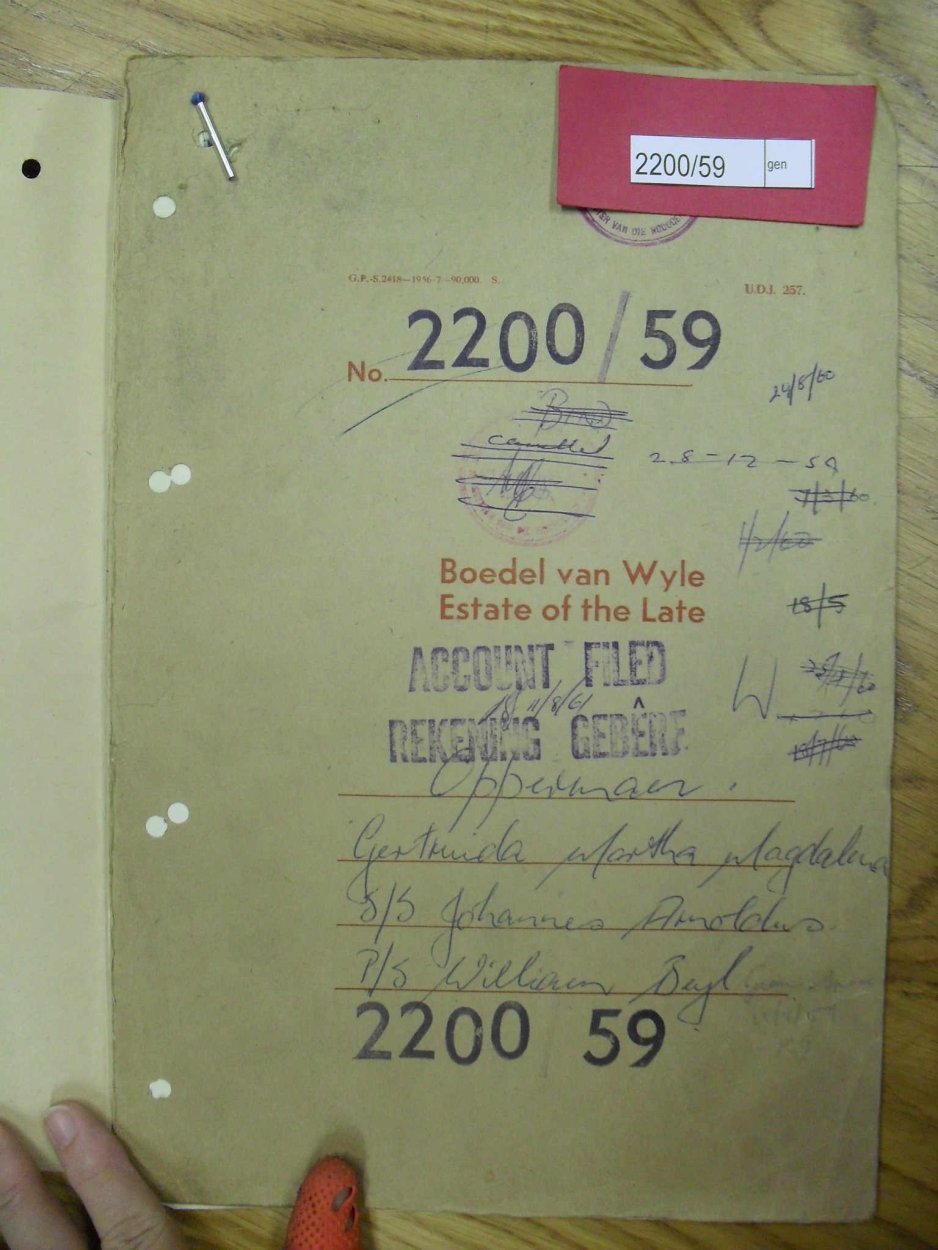 2200/59 gen
VAN DIE HOOGGE
G.P.-S.2418—1956-7—90,000 S.
U.D.J. 257.
No. 2200/59
24/8/60
cancelled
28-12-59
7/3/60
1/2/60
18/5
Boedel van Wyle
Estate of the Late
ACCOUNT FILED
11/8/61
W
REKENING GEBÊRE
18/7/60
Opperman.
Gertruida Martha Magdalena
S/S Johannes Arnoldus
P/S William Beyl
2200 59